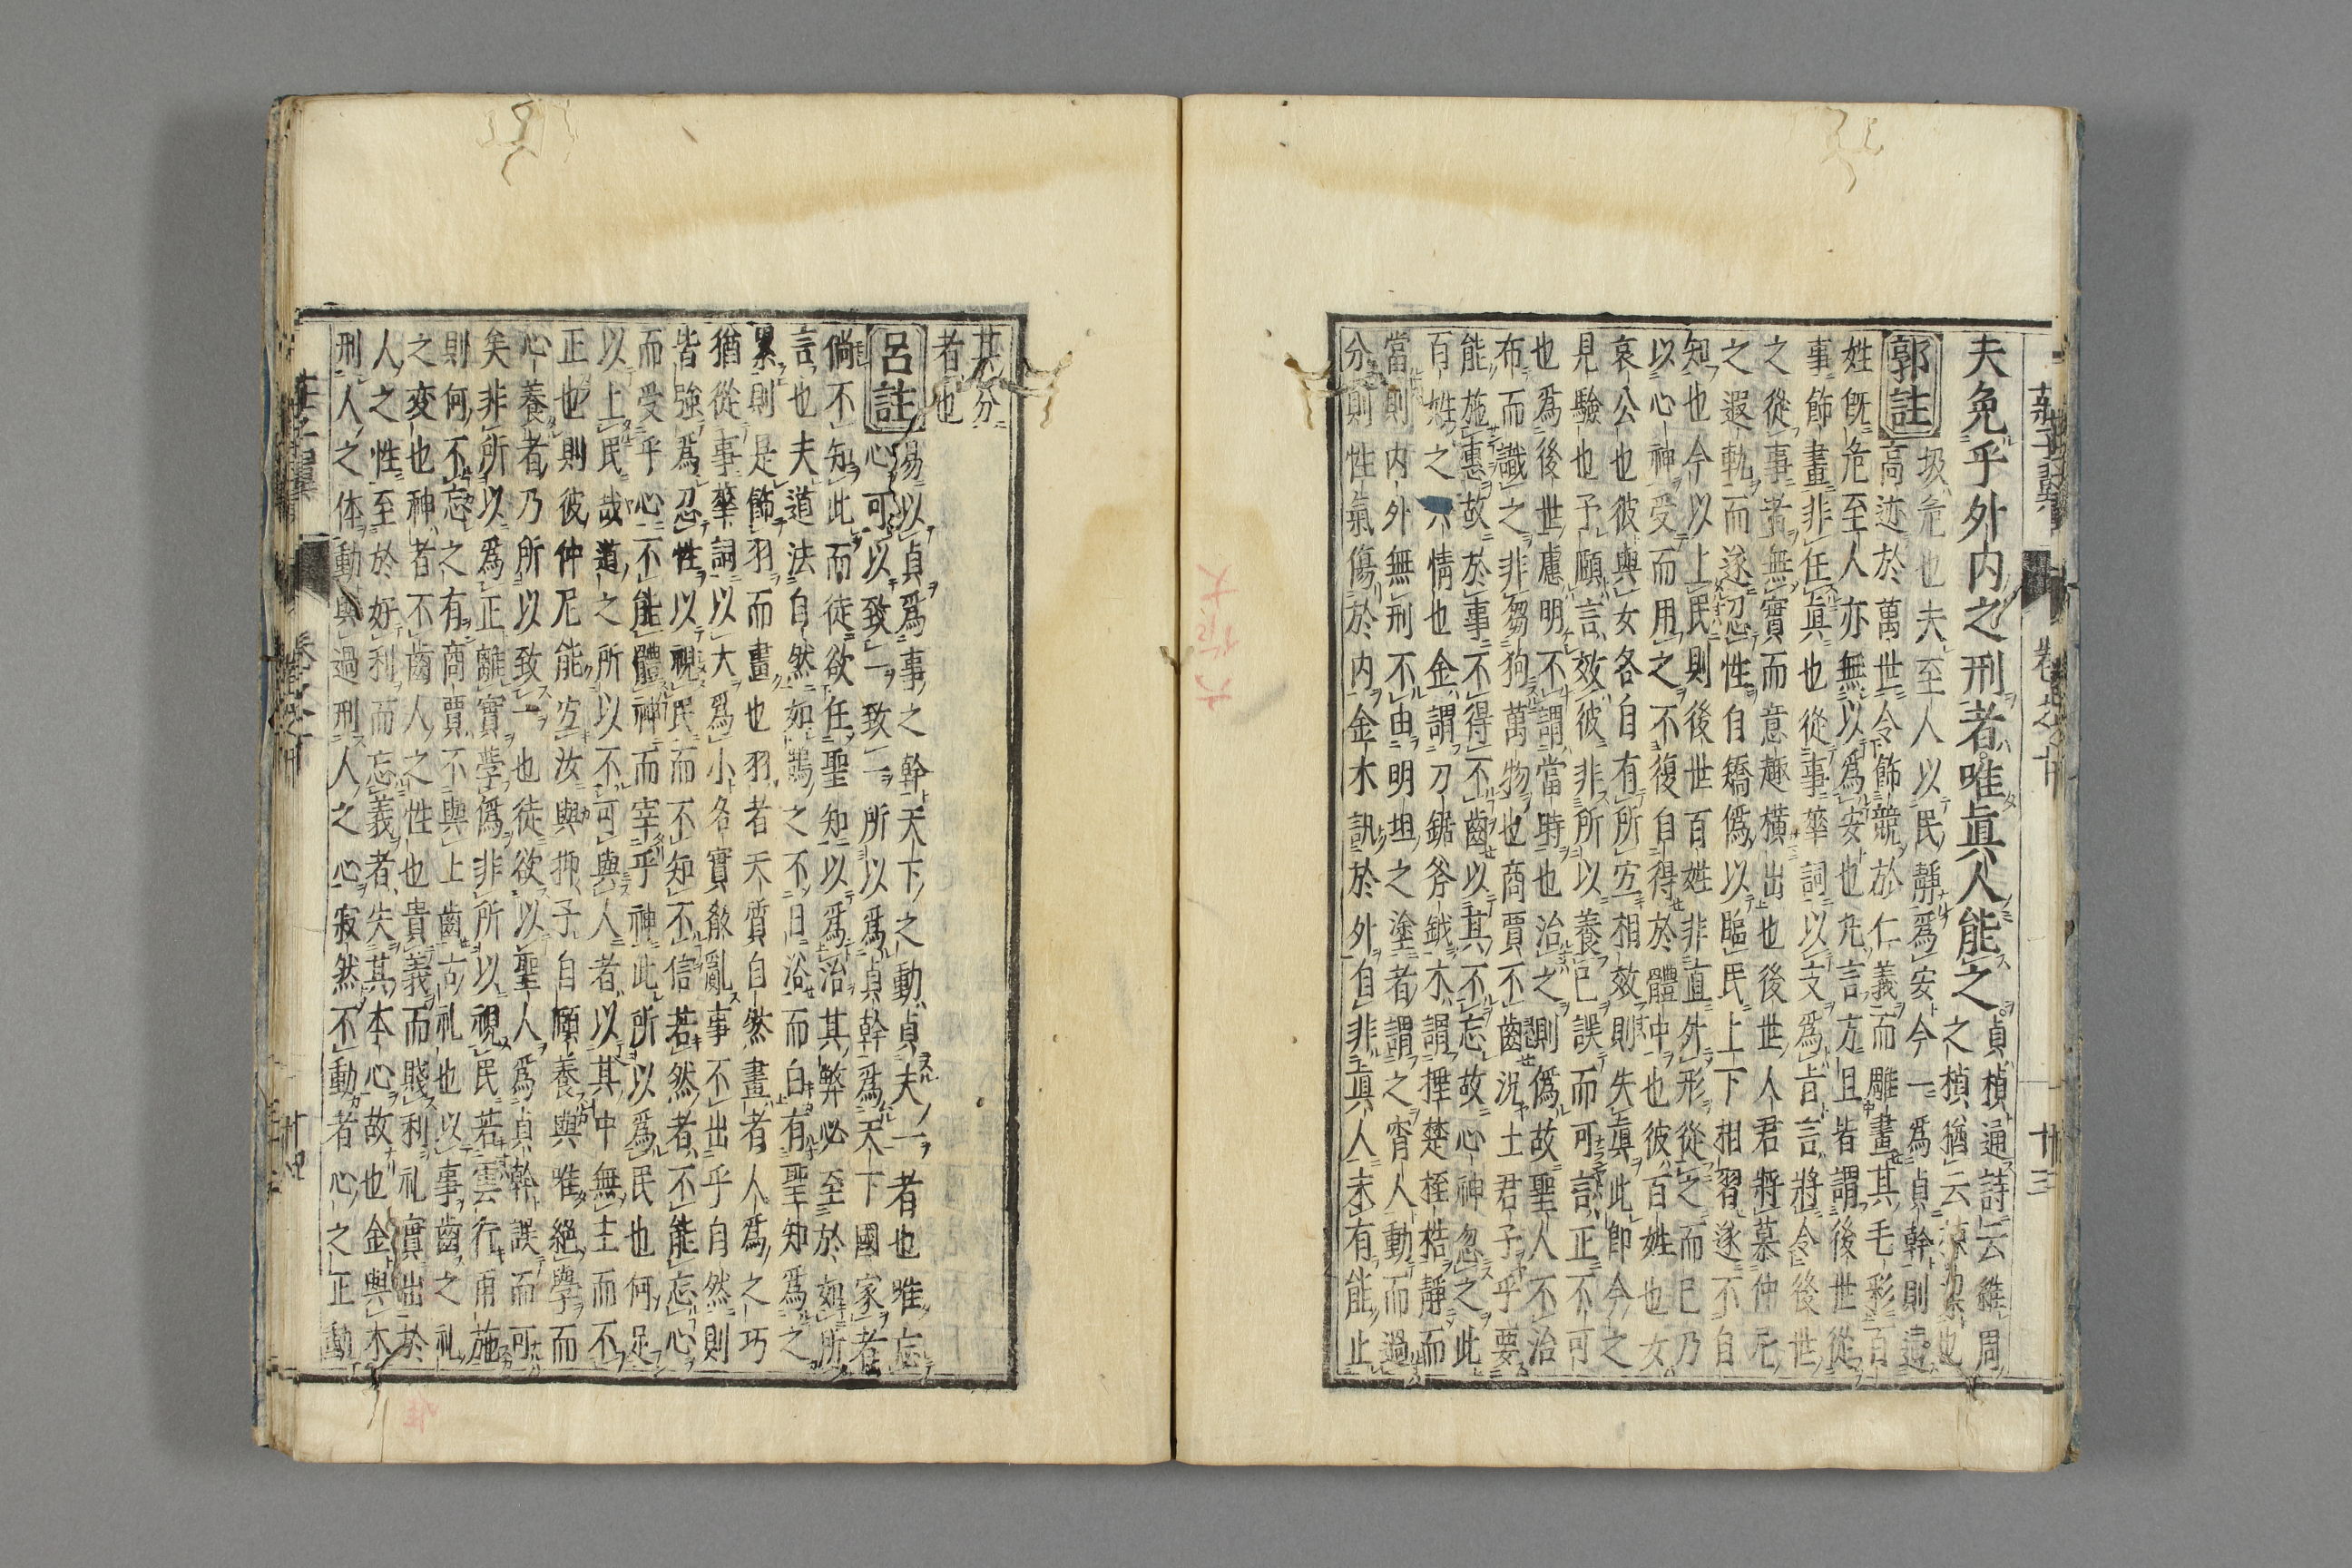 夫免乎外内之刑者唯眞人能之貞楨通詩云維周
之楨猶云也
圾危也夫至人以民靜爲安今一爲貞幹則遺
郭註高迹於萬世令飾競於仁義而雕畫其毛彩百
姓旣危至人亦無以爲安也凡言方且皆謂後世從
事飾畫非任眞也從事華詞以支爲旨言將令後世
之從事者無實而意趣橫出也後世人君將慕仲尼
之遐軌而遂忍性自矯僞以臨民上下相習遂不自
知也今以上民則後世百姓非直外形從之而已乃
以心神受而用之不復自得於體中也彼百姓也女
哀公也彼與女各自有所宜相效則失眞此即今之
見驗也予頤言效彼非所以養已誤而可言正不可
也爲後世慮明不謂當時也治之則僞故聖人不治
布而識之非芻狗萬物也商賈不齒況士君子乎要
能施惠故於事不得不齒以其不忘故心神忽之此
百姓之六情也金謂刀鋸斧鉞木謂捶楚桎梏靜而
當則内外無刑不由明坦之塗者謂之宵人動而過
分則性氣傷於内金木訊於外自非眞人未有能止
其分
者也
呂註易以貞爲事之幹天下之動貞夫一者也唯忘
心可以致一致一所以爲貞幹爲天下國家者
倘不知此而徒欲任聖知以爲治其弊必至於如所
言也夫道法自然如鵠之不日浴而白有聖知爲之
累則是飾羽而畫也羽者天質自然畫者人爲之巧
猶從事華詞以大爲小各實殽亂事不出乎自然則
皆強爲忍性以視民而不知不信若然者不能忘心
而受乎心不能體神而宰乎神此所以爲民也何足
以上民哉道之所以不可與人者以其中無主而不
正也則彼仲尼能宜汝與抑子自頤養與唯絕學而
心養者乃所以致一也徒欲以聖人爲貞幹誤而可
矣非所以爲正離實學僞非所以視民若雲行雨施
則何不忘之有商賈不與上齒高礼也以事齒之礼
之变也神者不齒人之性也貴義而賤利礼實出於
人之性至於好利而忘義者失其本心故也金與木
刑人之体動與過刑人之心寂然不動者心之正動